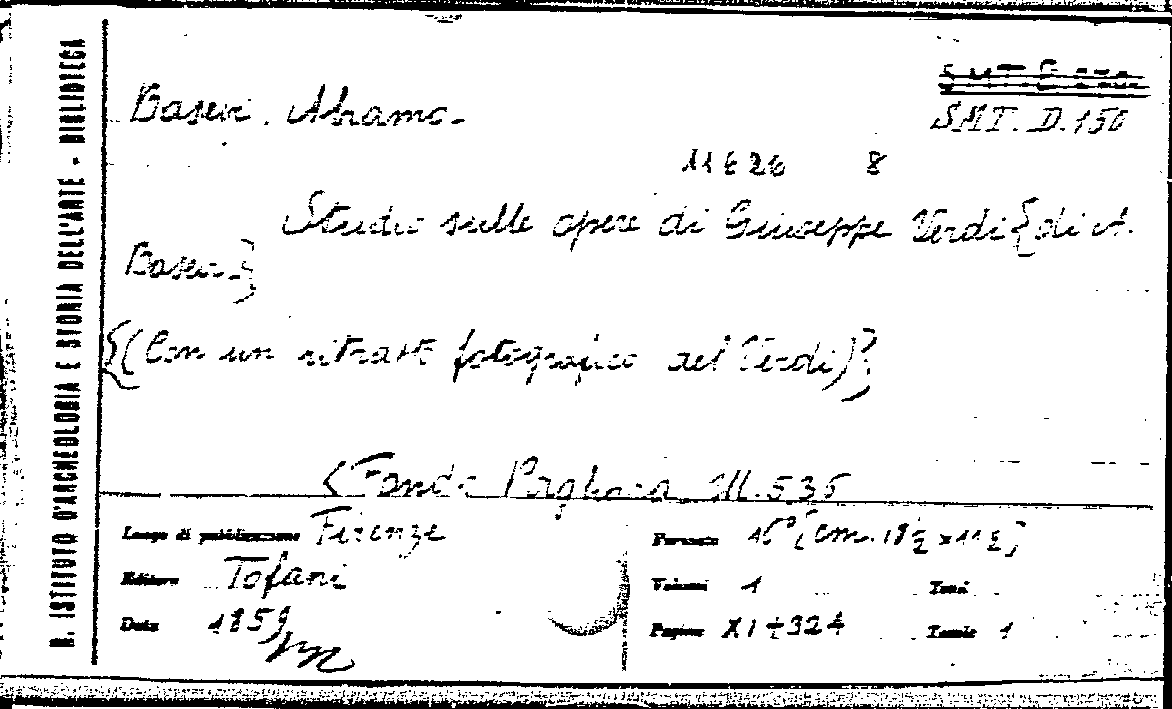 R. ISTITUTO D'ARCHEOLOGIA E STORIA DELL'ARTE - BIBLIOTECA
Basevi. Abramo.
SMT. D.150
11626 8
Studio sulle opere di Giuseppe Verdi {di A.
Basevi}
{(Con un ritratto fotografico del Verdi)}
<Fondo Pagliara M.535
Luogo di pubblicazione Firenze
Editore Tofani
Data 1859
Formato 16° [cm. 18½ x 11½]
Volumi 1 Tomi
Pagine XI+324 Tavole 1